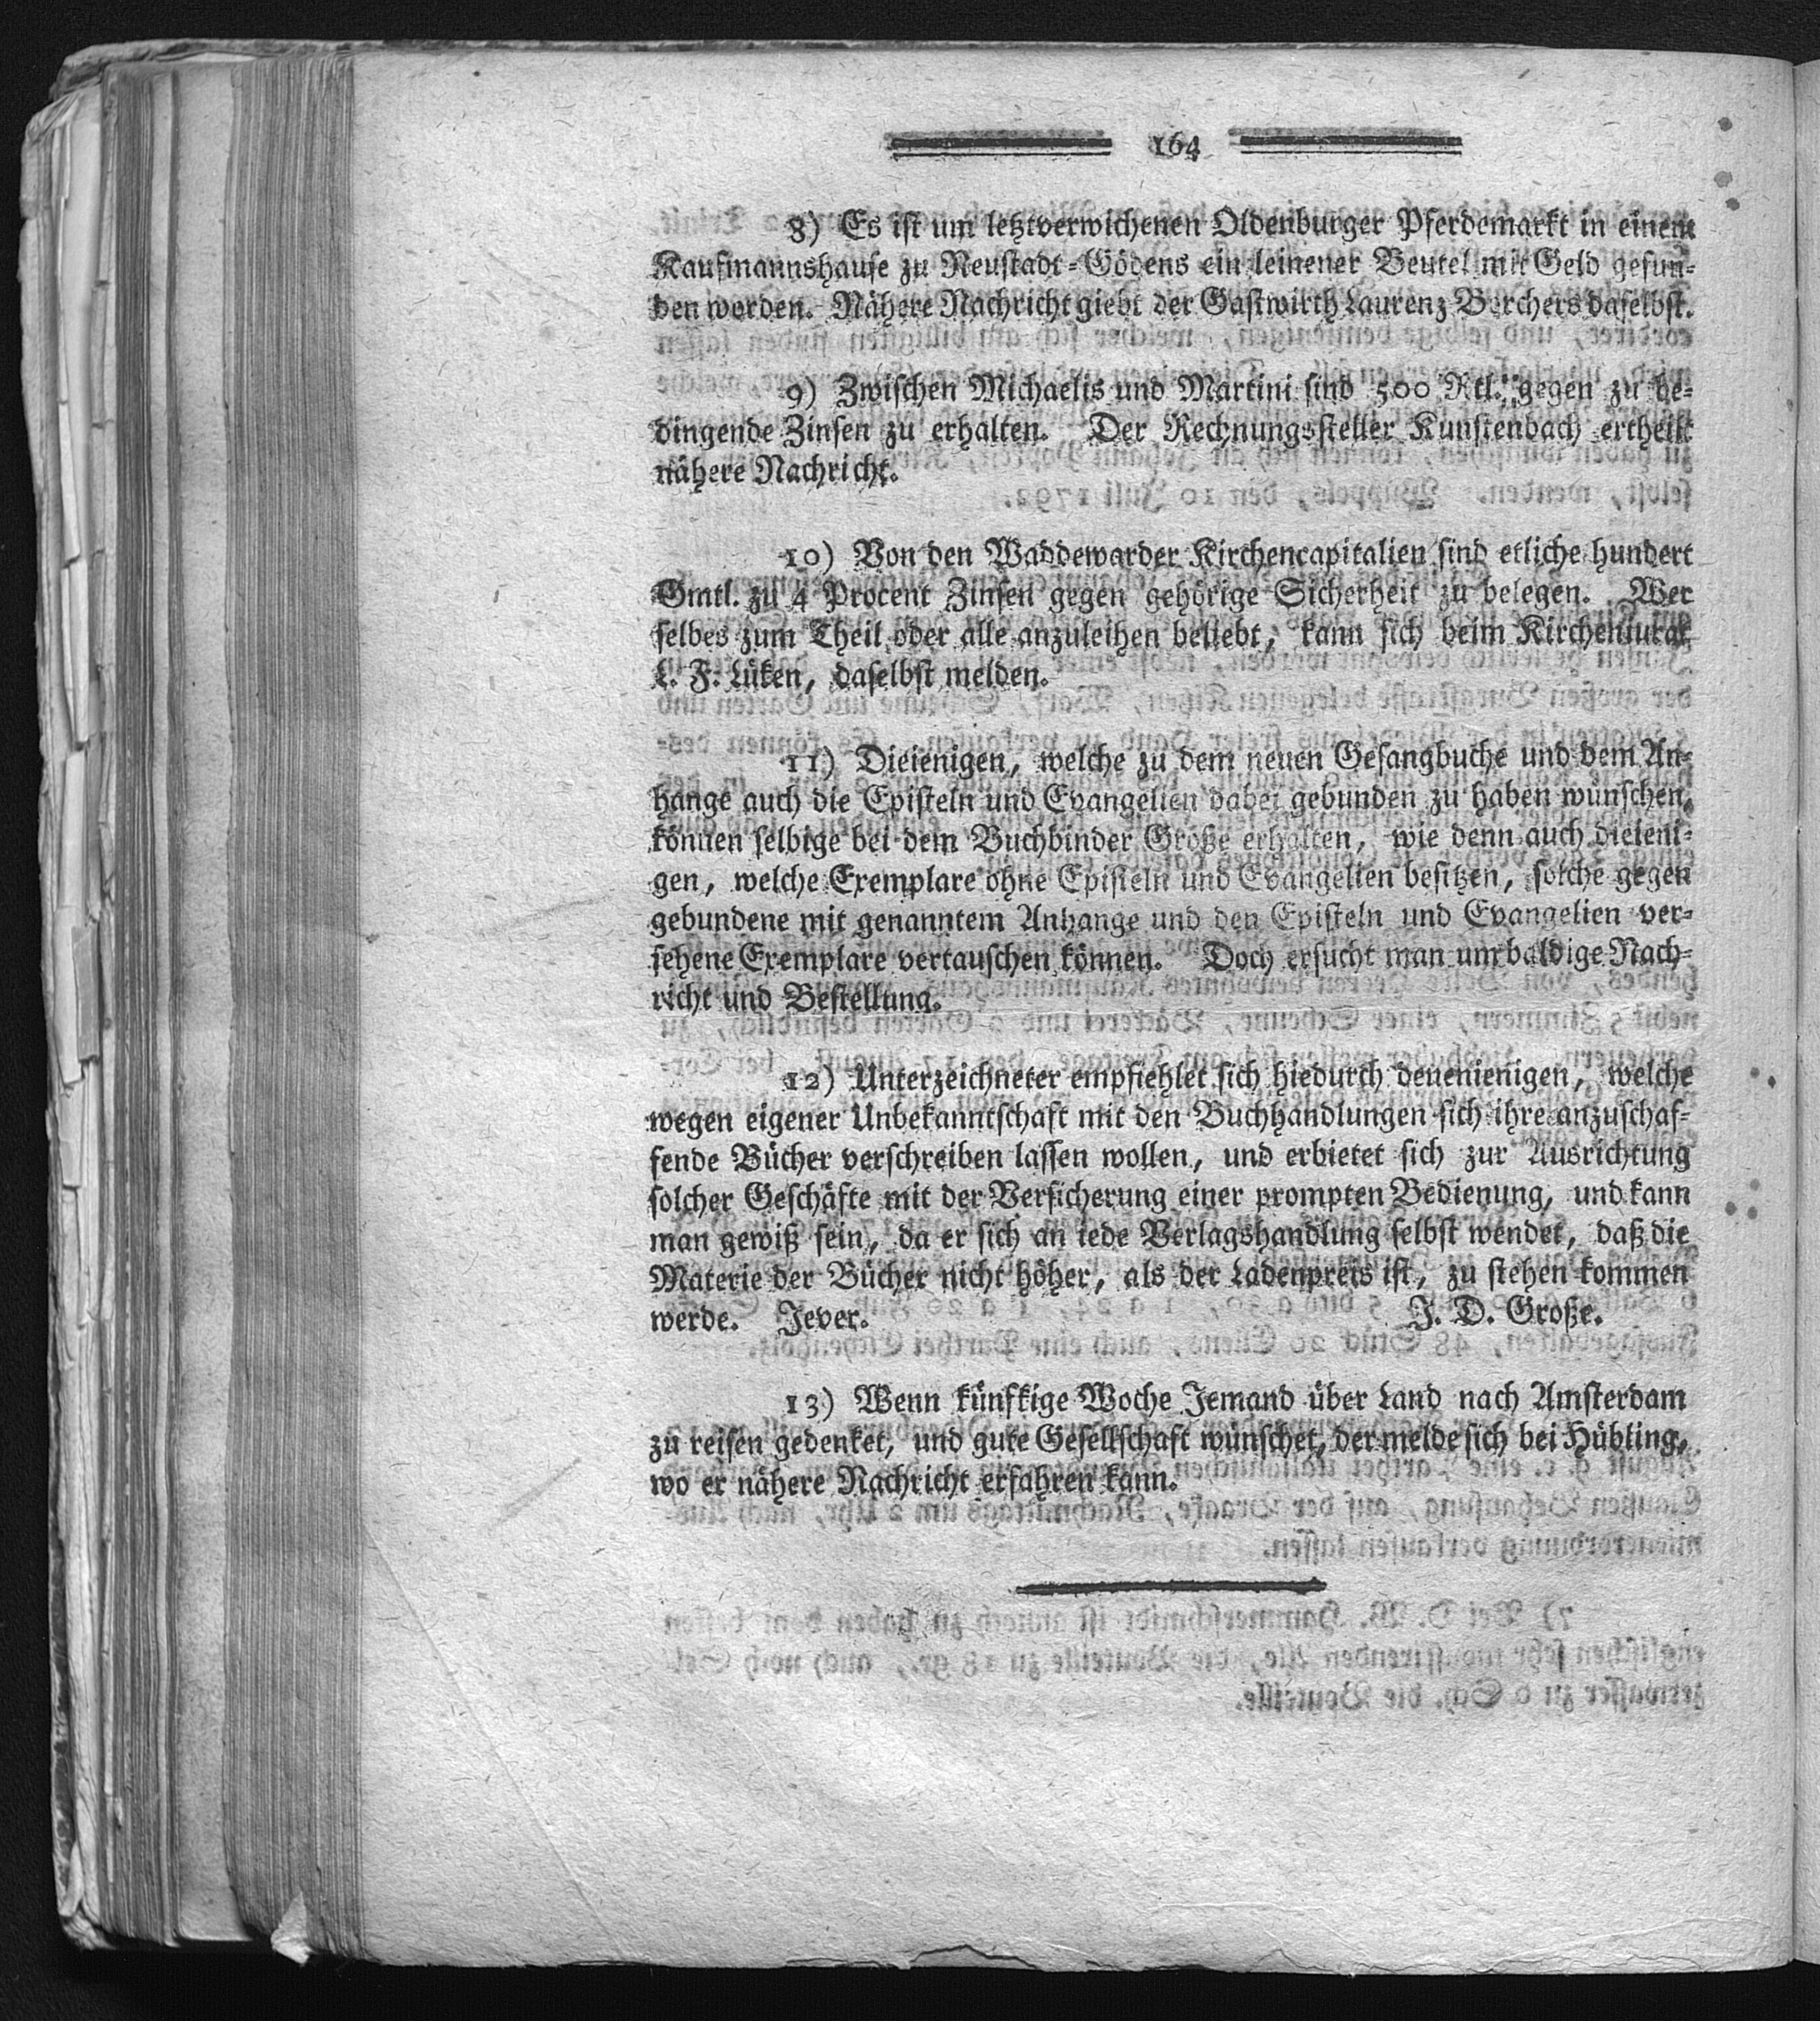 164
8) Es ist um letztverwichenen Oldenburger Pferdemarkt in einem
Kaufmannshause zu Neustadt-Gödens ein leinener Beutel mit Geld gefun-
den worden. Nähere Nachricht giebt der Gastwirth Laurenz Borchers daselbst.
9) Zwischen Michaelis und Martini sind 500 Rtl. gegen zu be-
dingende Zinsen zu erhalten. Der Rechnungssteller Kunstenbach ertheilt
nähere Nachricht.
10) Von den Waddewarder Kirchencapitalien sind etliche hundert
Gmtl. zu 4 Procent Zinsen gegen gehörige Sicherheit zu belegen. Wer
selbes zum Theil oder alle anzuleihen beliebt, kann sich beim Kirchenjurat
L. F. Lüken, daselbst melden.
11) Dieienigen, welche zu dem neuen Gesangbuche und dem An-
hange auch die Episteln und Evangelien dabei gebunden zu haben wünschen,
können selbige bei dem Buchbinder Große erhalten, wie denn auch dieieni-
gen, welche Exemplare ohne Episteln und Evangelien besitzen, solche gegen
gebundene mit genanntem Anhange und den Episteln und Evangelien ver-
sehene Exemplare vertauschen können. Doch ersucht man um baldige Nach-
richt und Bestellung.
12) Unterzeichneter empfiehlet sich hiedurch denenienigen, welche
wegen eigener Unbekanntschaft mit den Buchhandlungen sich ihre anzuschaf-
fende Bücher verschreiben lassen wollen, und erbietet sich zur Ausrichtung
solcher Geschäfte mit der Versicherung einer prompten Bedienung, und kann
man gewiß sein, da er sich an iede Verlagshandlung selbst wendet, daß die
Materie der Bücher nicht höher, als der Ladenpreis ist, zu stehen kommen
werde. Jever. J. D. Große.
13) Wenn künftige Woche Jemand über Land nach Amsterdam
zu reisen gedenket, und gute Gesellschaft wünschet, der melde sich bei Hübling,
wo er nähere Nachricht erfahren kann.